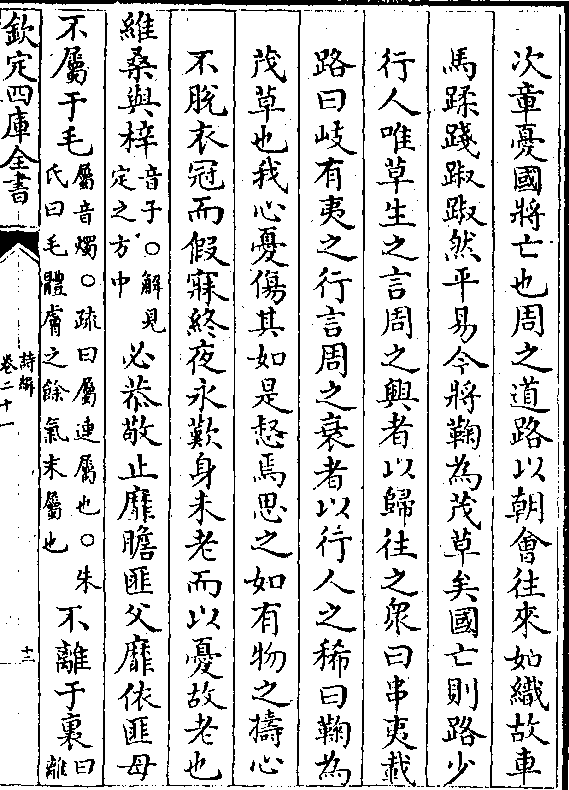 次章憂國將亡也周之道路以朝會往來如織故車
馬蹂踐踧踧然平易今將鞠為茂草矣國亡則路少
行人唯草生之言周之興者以歸往之衆曰串夷載
路曰岐有夷之行言周之衰者以行人之稀曰鞠為
茂草也我心憂傷其如是惄焉思之如有物之擣心
不脫衣冠而假寐終夜永歎身未老而以憂故老也
維桑與梓音子○解見定之方中必恭敬止靡瞻匪父靡依匪母
不屬于毛屬音燭○疏曰屬連屬也○朱氏曰毛體膚之餘氣末屬也不離于裏曰離
欽定四庫全書
詩緝
卷二十一
十三